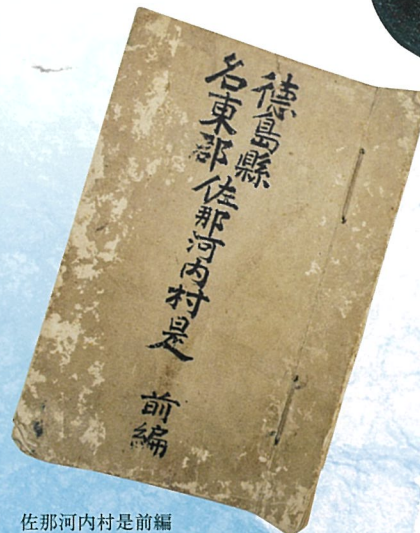 徳島縣
名東郡佐那河内村是 前編
佐那河内村是前編